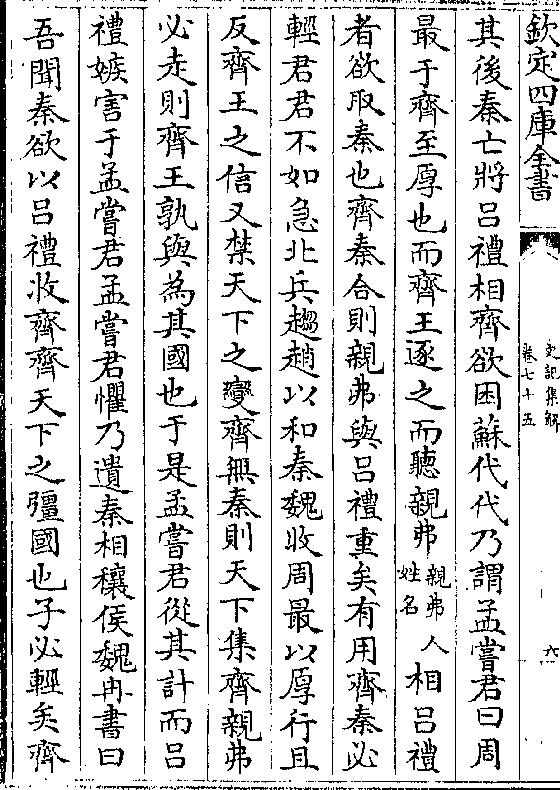 欽定四庫全書
史記集解
卷七十五
六
其後秦亡將呂禮相齊欲困蘇代代乃謂孟嘗君曰周
最于齊至厚也而齊王逐之而聽親弗親弗人姓名相呂禮
者欲取秦也齊秦合則親弗與呂禮重矣有用齊秦必
輕君君不如急北兵趨趙以和秦魏收周最以厚行且
反齊王之信又禁天下之變齊無秦則天下集齊親弗
必走則齊王孰與為其國也于是孟嘗君從其計而呂
禮嫉害于孟嘗君孟嘗君懼乃遺秦相穰侯魏冉書曰
吾聞秦欲以呂禮收齊齊天下之彊國也子必輕矣齊